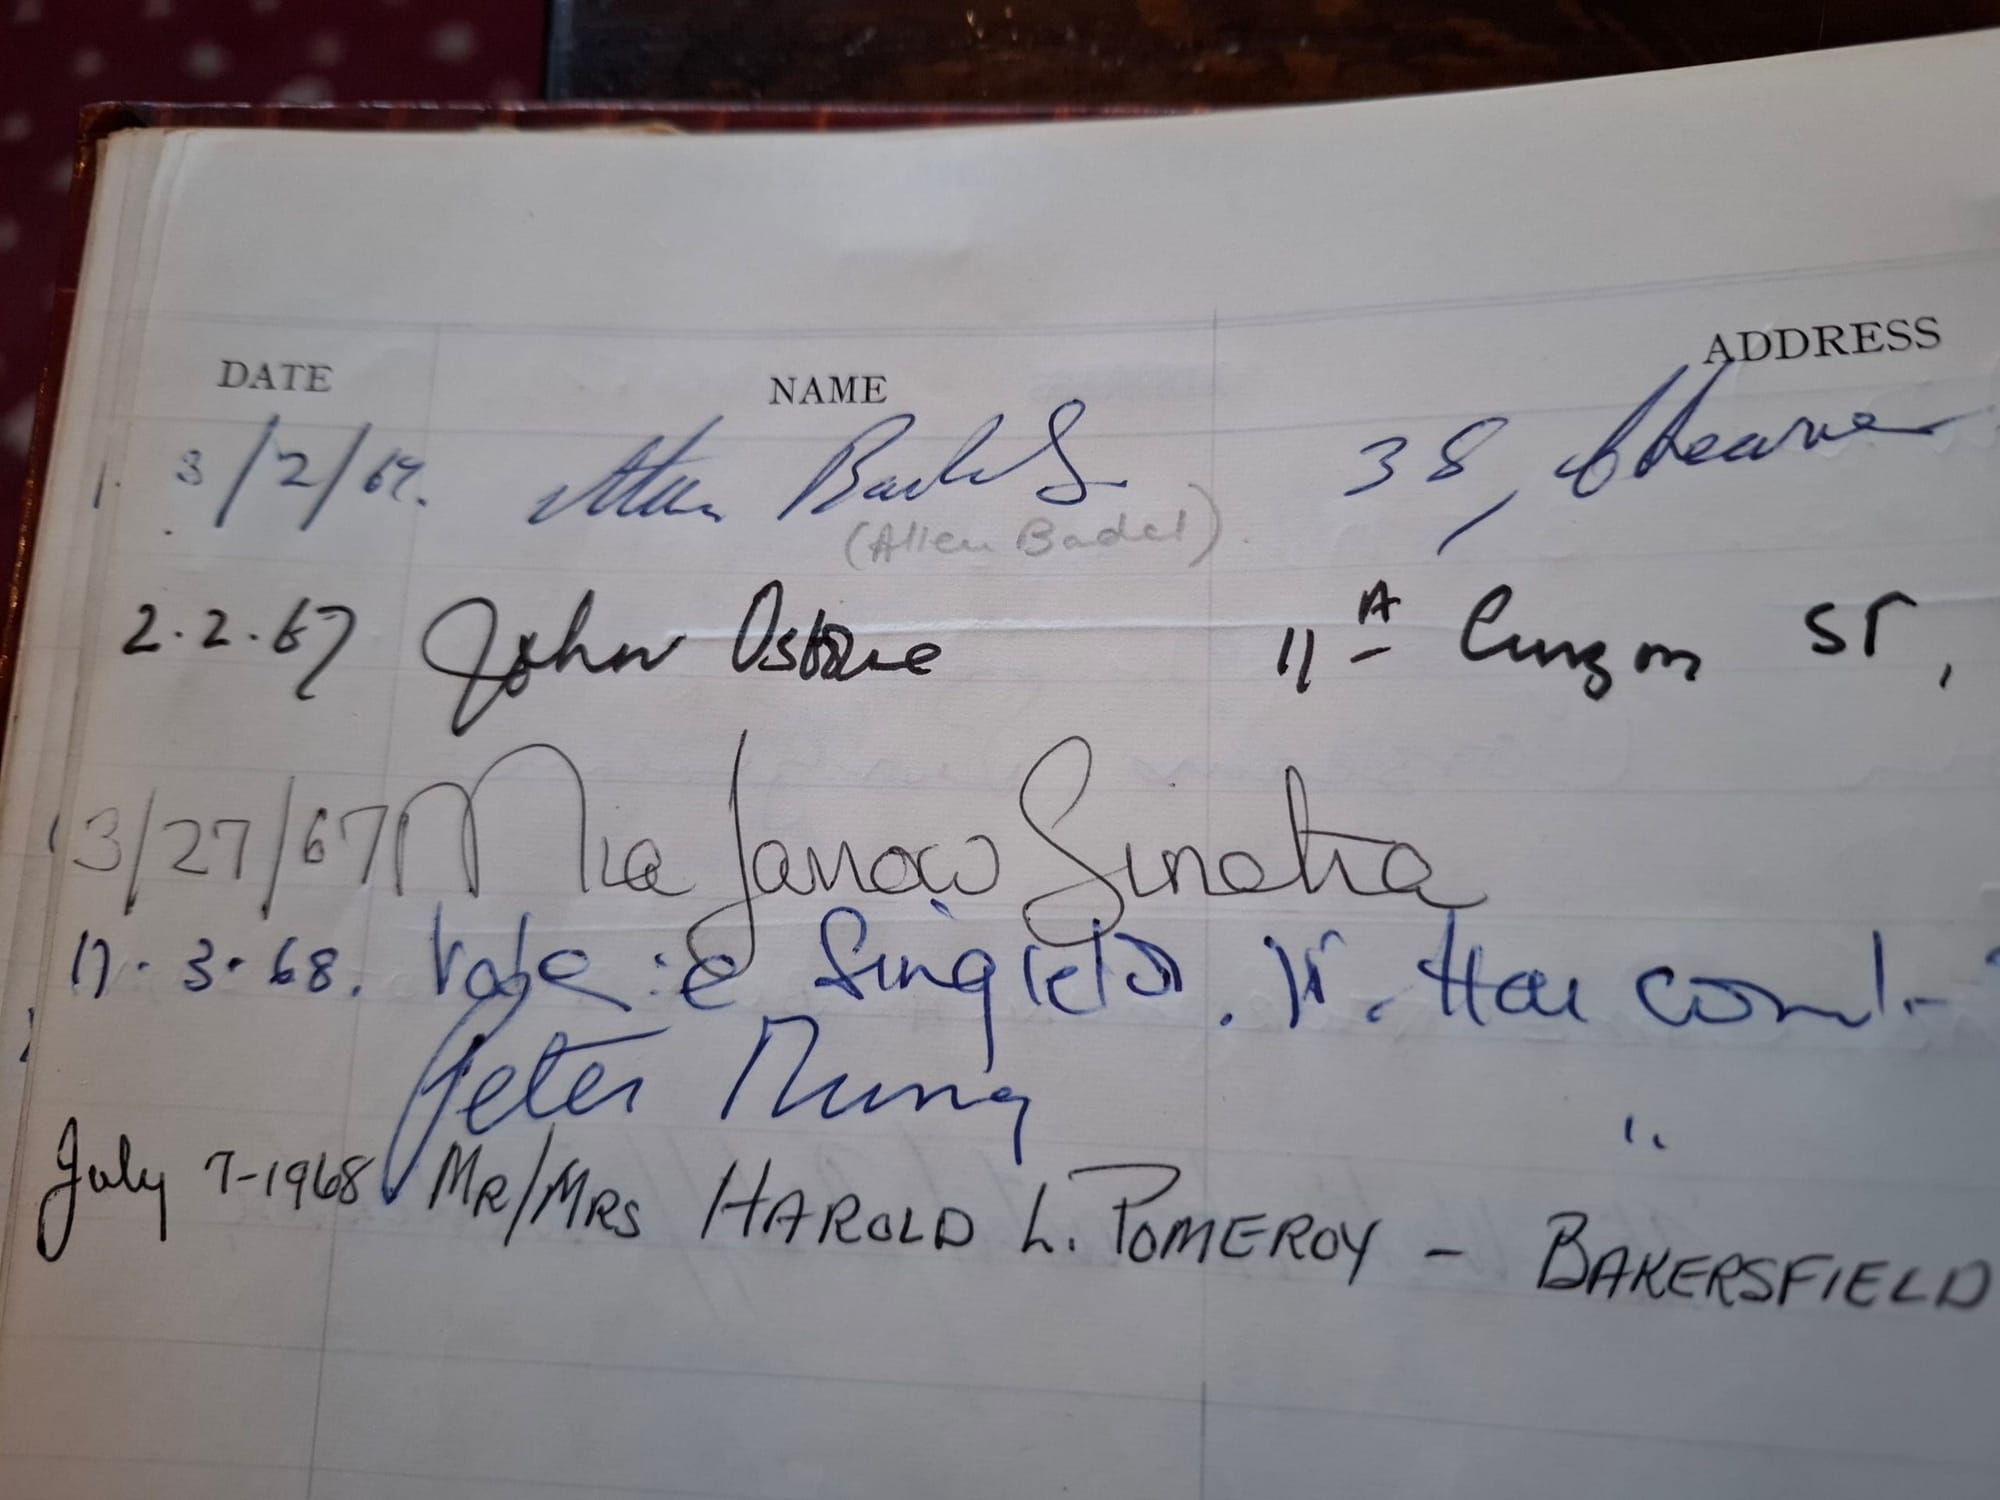 DATE NAME ADDRESS
3/2/67. Alan Badel 38,
(Allen Badel).
2.2.67 John Osborne 11A Curzon ST,
3/27/67 Mia Farrow Sinatra
17.3.68. Valerie Singleton.
Peter "
July 7-1968 MR/MRS HAROLD L. POMEROY - BAKERSFIELD